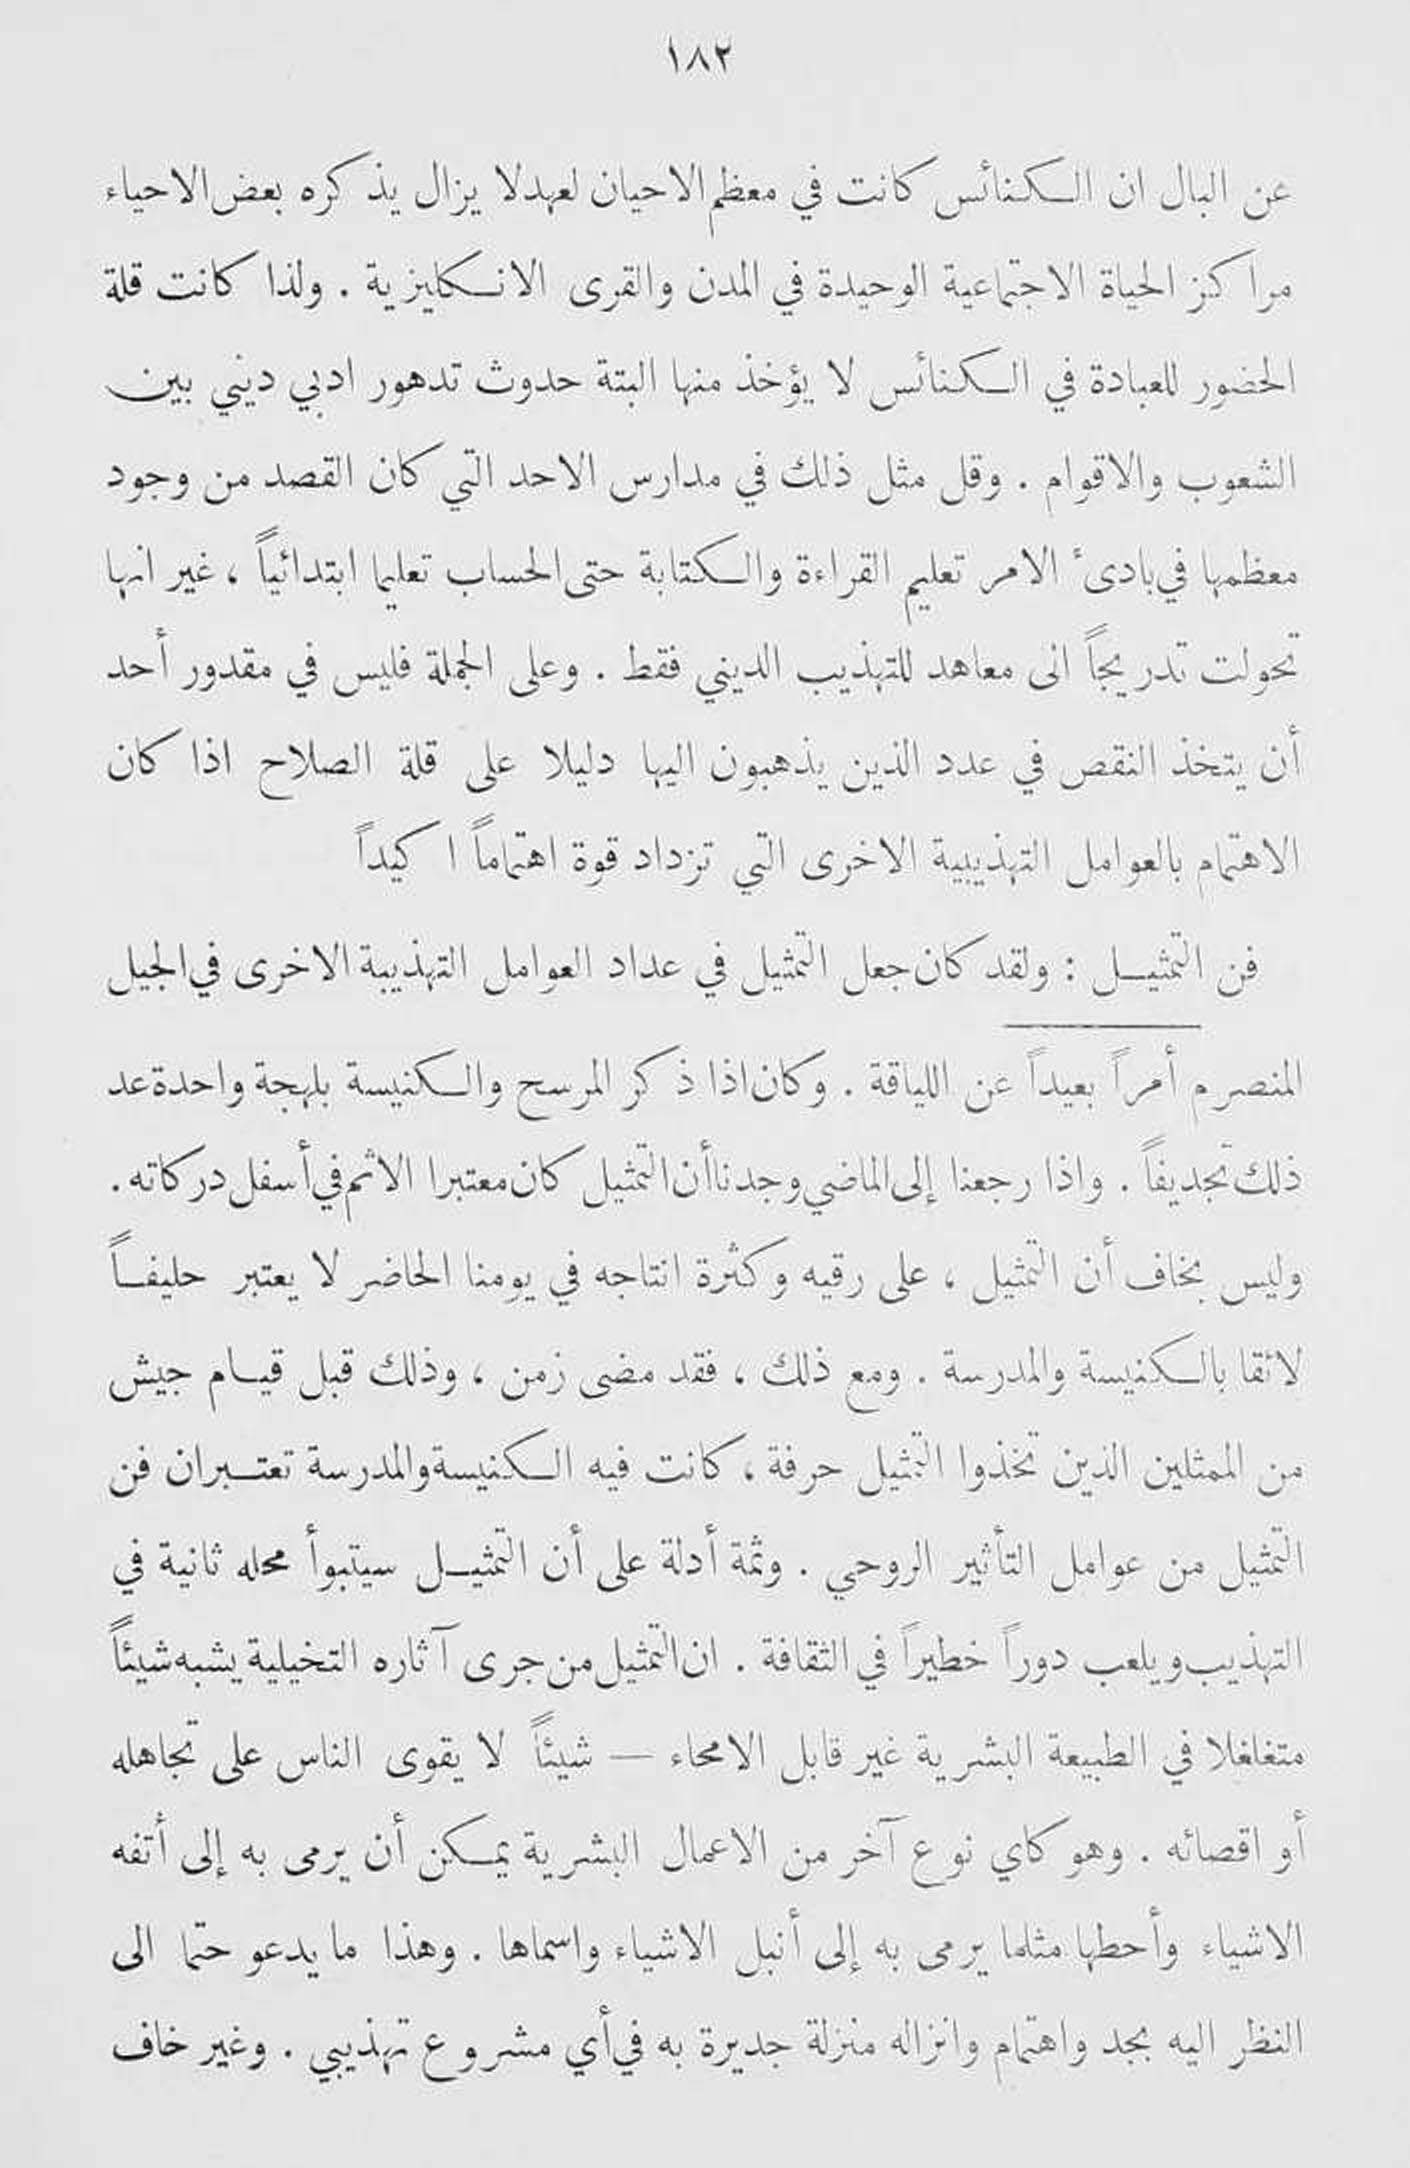 ١٨٢
عن البال ان الكنائس كانت في معظم الاحيان لعهد لا يزال يذكره بعض الاحياء
مراكز الحياة الاجتماعية الوحيدة في المدن والقرى الانكليزية . ولذا كانت قلة
الحضور للعبادة في الكنائس لا يؤخذ منها البتة حدوث تدهور ادبي ديني بين
الشعوب والاقوام . وقل مثل ذلك في مدارس الاحد التي كان القصد من وجود
معظمها في بادىء الامر تعليم القراءة والكتابة حتى الحساب تعليما ابتدائياً ، غير انها
تحولت تدريجاً الى معاهد للتهذيب الديني فقط . وعلى الجملة فليس في مقدور أحد
أن يتخذ النقص في عدد الذين يذهبون اليها دليلا على قلة الصلاح اذا كان
الاهتمام بالعوامل التهذيبية الاخرى التي تزداد قوة اهتماماً اكيداً
فن التمثيل : ولقد كان جعل التمثيل في عداد العوامل التهذيبة الاخرى في الجيل
المنصرم أمراً بعيداً عن اللياقة . وكان اذا ذكر المرسح والكنيسة بلهجة واحدة عد
ذلك تجديفاً . واذا رجعنا إلى الماضي وجدنا أن التمثيل كان معتبرا الاثم في أسفل دركاته .
وليس بخاف أن التمثيل ، على رقيه وكثرة انتاجه في يومنا الحاضر لا يعتبر حليفاً
لائقا بالكنيسة والمدرسة . ومع ذلك ، فقد مضى زمن ، وذلك قبل قيام جيش
من الممثلين الذين تخذوا التمثيل حرفة ، كانت فيه الكنيسة والمدرسة تعتبران فن
التمثيل من عوامل التأثير الروحي . وثمة أدلة على أن التمثيل سيتبوأ محله ثانية في
التهذيب ويلعب دوراً خطيراً في الثقافة . ان التمثيل من جرى آثاره التخيلية يشبه شيئاً
متغلغلا في الطبيعة البشرية غير قابل الامحاء — شيئاً لا يقوى الناس على تجاهله
أو اقصائه . وهو كاي نوع آخر من الاعمال البشرية يمكن أن يرمى به إلى أتفه
الاشياء وأحطها مثلما يرمى به إلى أنبل الاشياء واسماها . وهذا ما يدعو حتما الى
النظر اليه بجد واهتمام وانزاله منزلة جديرة به في أي مشروع تهذيبي . وغير خاف